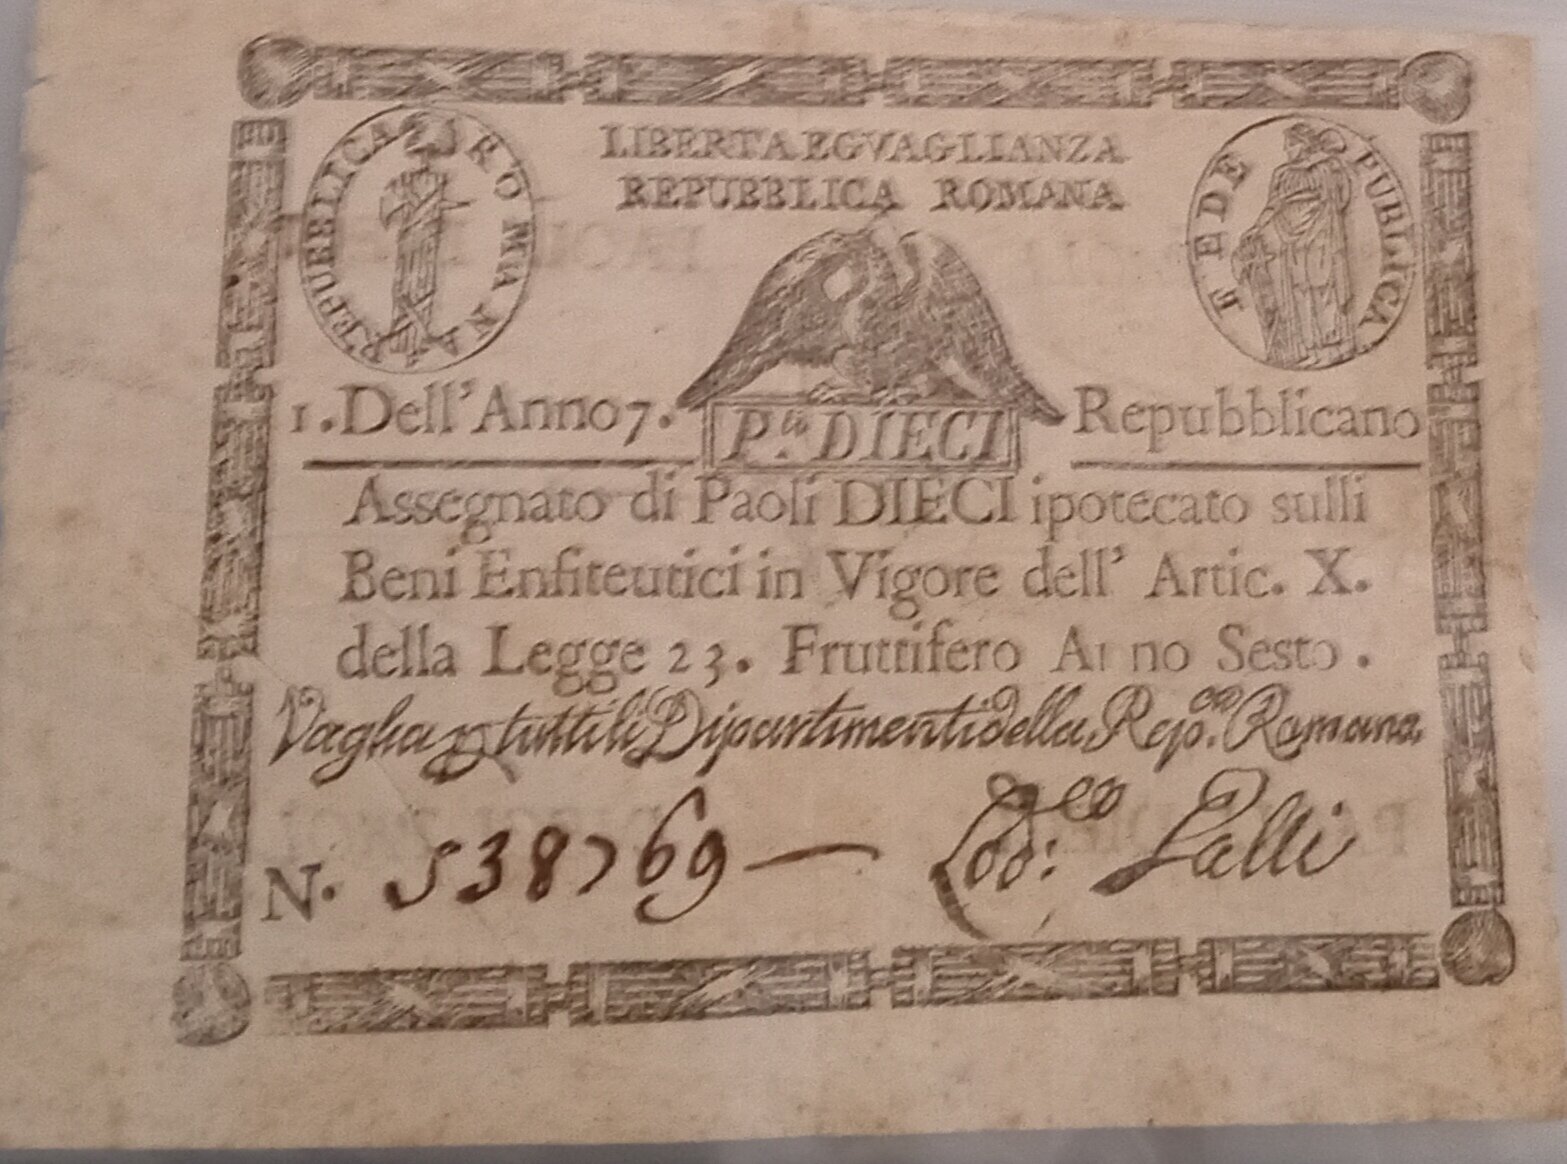 LIBERTA EGVAGLIANZA
REPUBBLICA ROMANA
REPUBBLICA ROMANA
FEDE PUBBLICA
1. Dell' Anno 7. Repubblicano
P.li DIECI
Assegnato di Paoli DIECI ipotecato sulli
Beni Enfiteutici in Vigore dell' Artic. X.
della Legge 23. Fruttifero Anno Sesto.
Vaglia p tutti li Dipartimenti della Rep.ca Romana.
N. 538769 — Lod:co Lalli